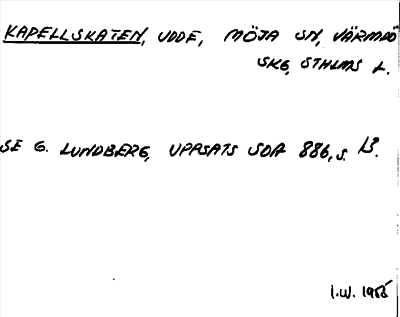 KAPELLSKATEN, UDDE, MÖJA SN, VÄRMDÖ
SKG, STHLMS L.
SE G. LUNDBERG, UPPSATS SOA 886, s. 13.
I.W. 1955